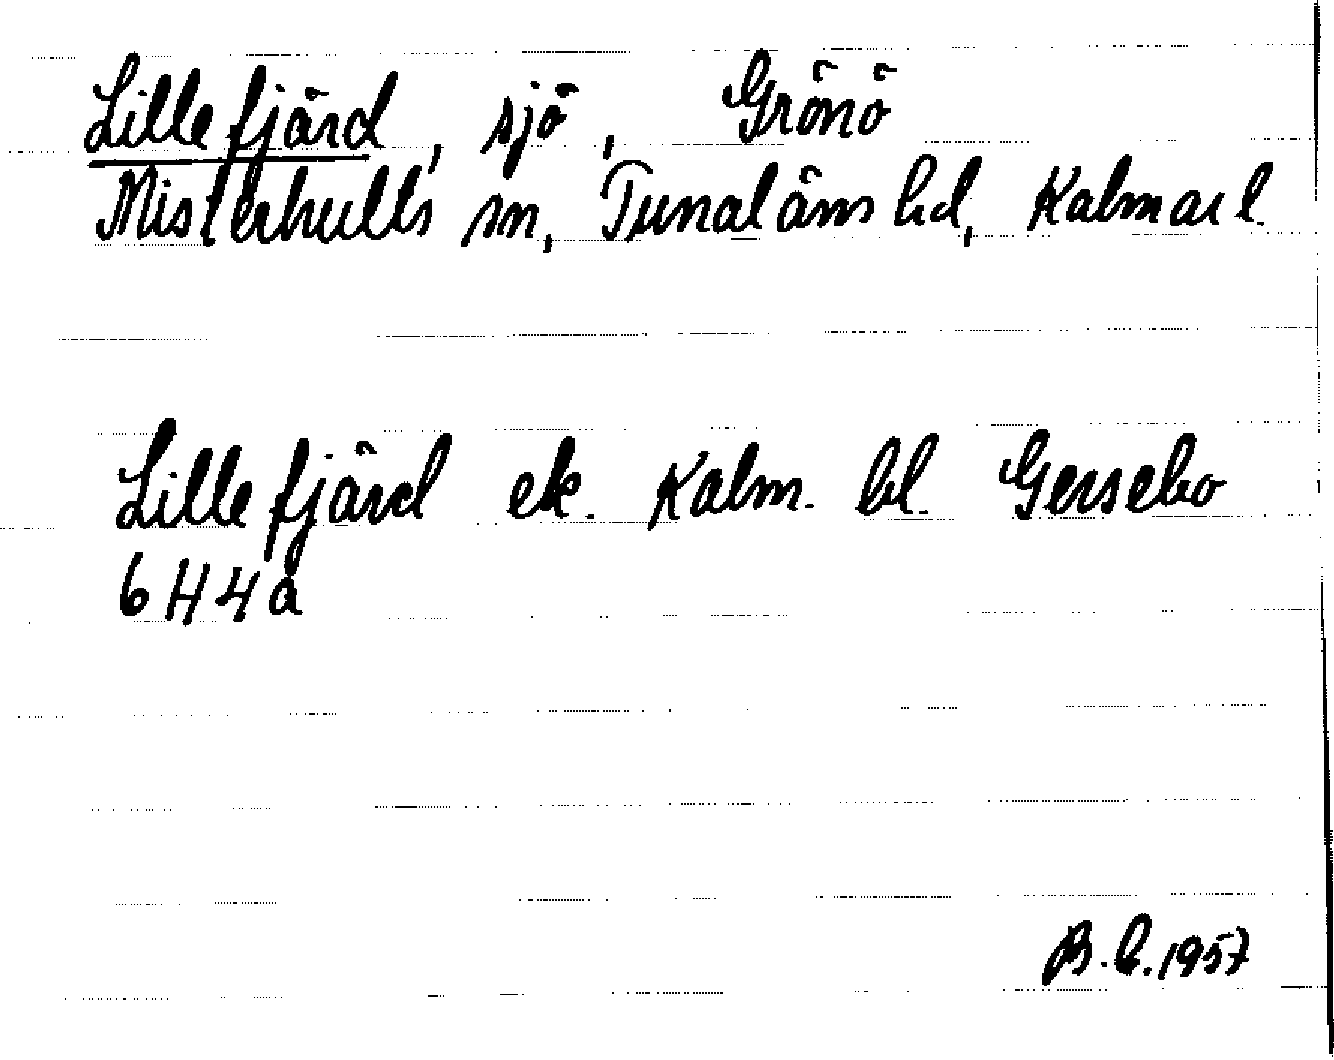 Lillefjärd, sjö, Grönö
Misterhults sn, Tunaläns hd, Kalmar l.
Lillefjärd ek. Kalm. bl. Gersebo
6H4a
B.E. 1957